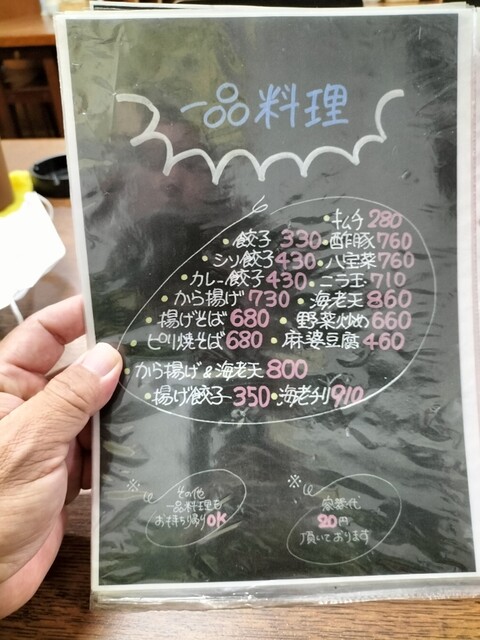 一品料理
・キムチ 280
・餃子 330 ・酢豚 760
・シソ餃子 430 ・八宝菜 760
・カレー餃子 430 ・ニラ玉 710
・から揚げ 730 ・海老天 860
・揚げそば 680 ・野菜炒め 660
・ピリ焼そば 680 ・麻婆豆腐 460
・から揚げ&海老天 800
・揚げ餃子 350 ・海老チリ 910
※ その他
一品料理も
お持ち帰りOK
※ 容器代
20円
頂いております